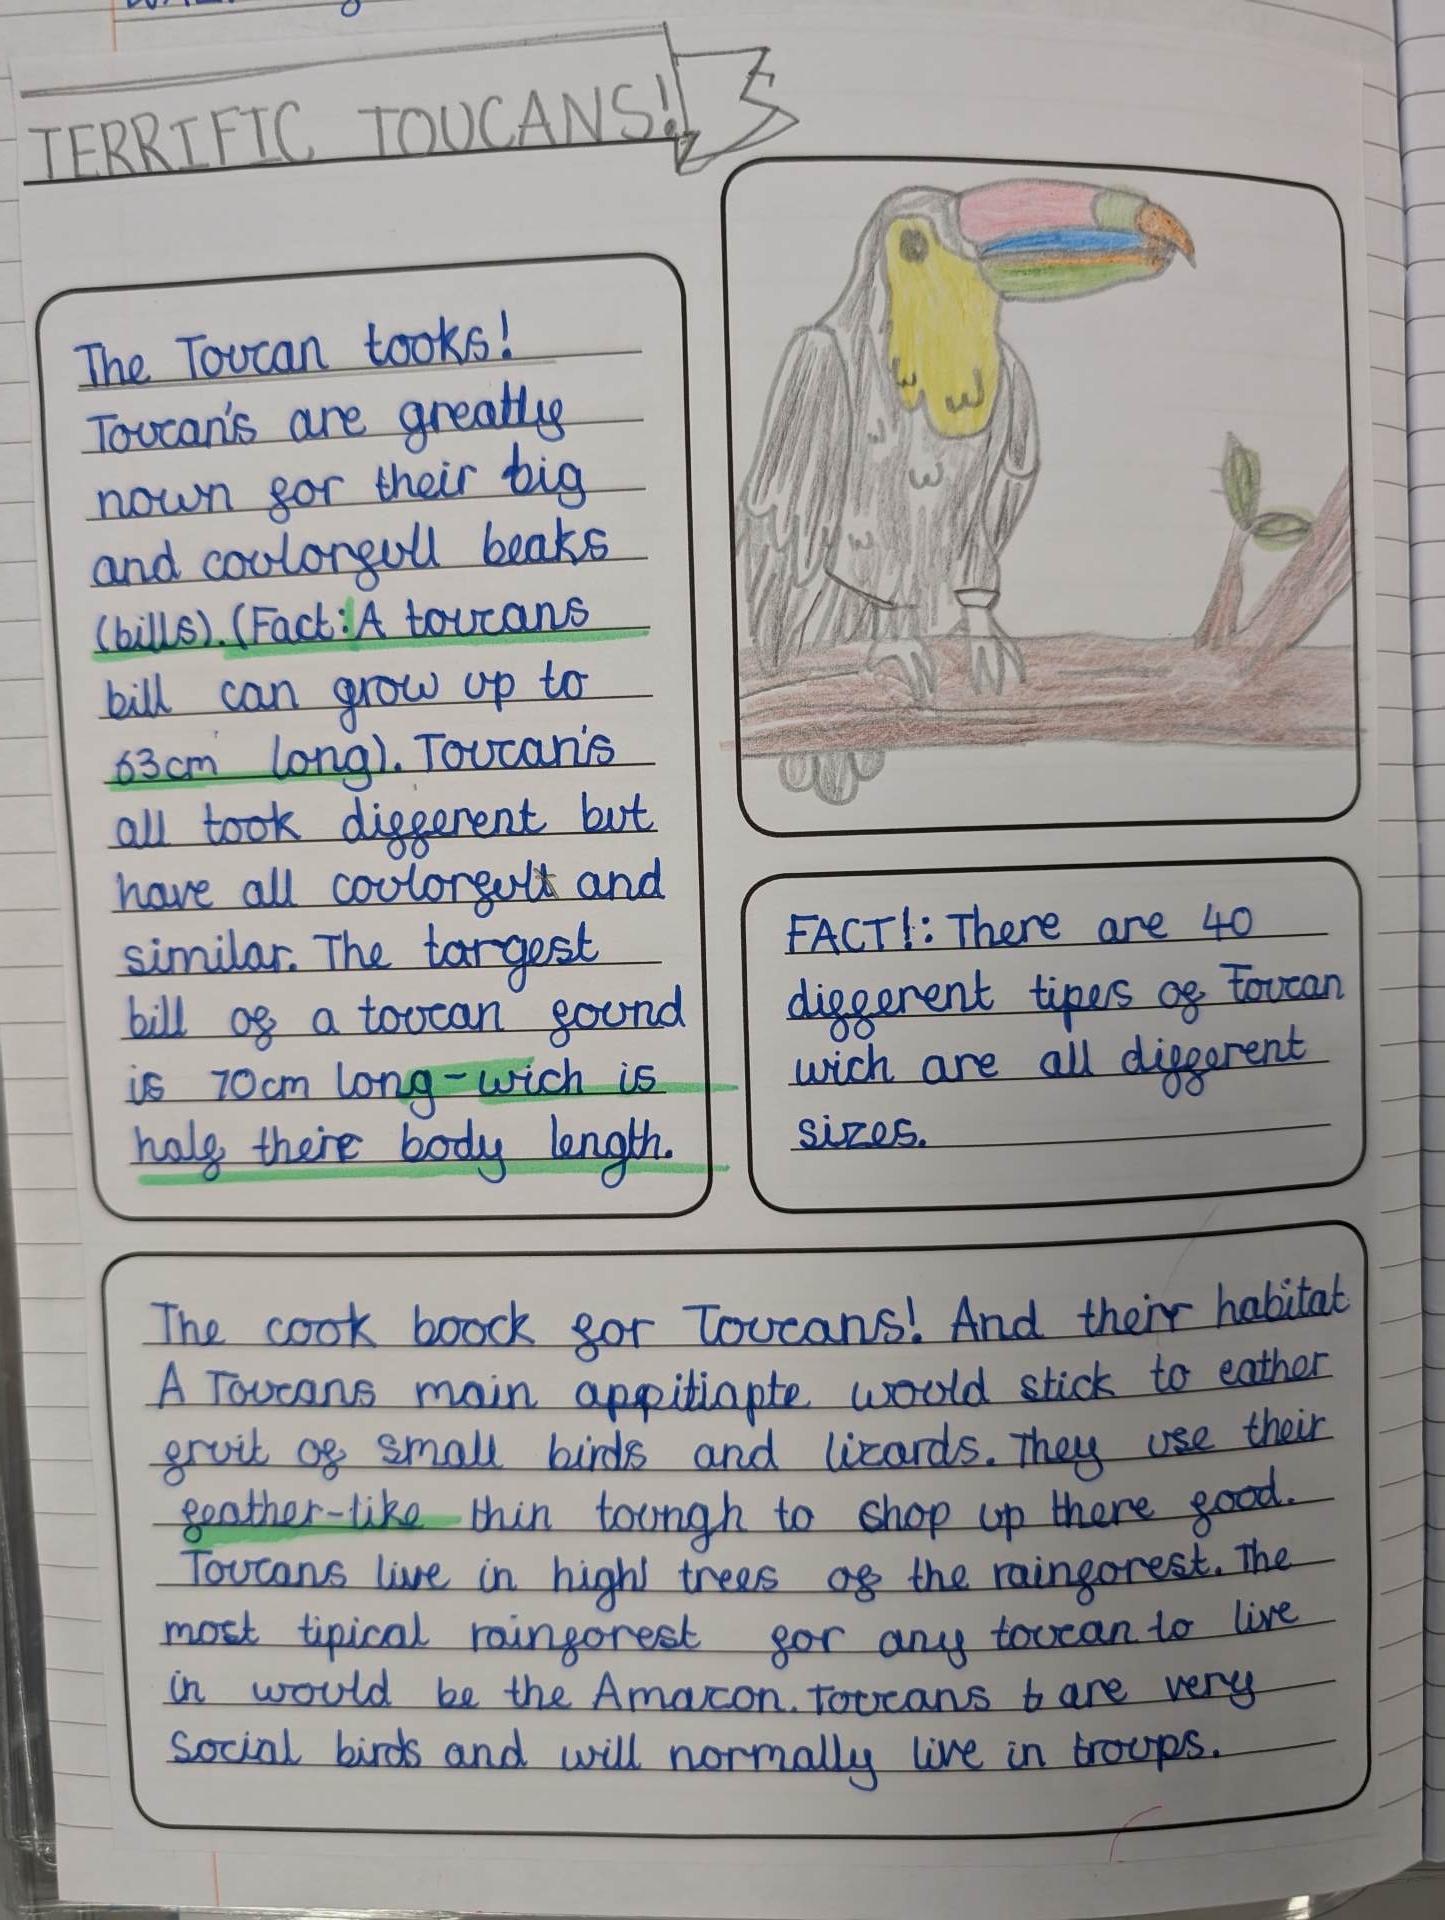 TERRIFIC TOUCANS!
The Toucan looks!
Toucan's are greatly
nown for their big
and coulorfull beaks
(bills). (Fact: A toucans
bill can grow up to
63cm long). Toucan's
all look different but
have all coulorfull and
similar. The largest
bill of a toucan found
is 70cm long-wich is
half there body length.
FACT!: There are 40
different tipes of Toucan
wich are all different
sizes.
The cook boock for Toucans! And their habitat
A Toucans main appitiapte would stick to eather
fruit of small birds and lizards. They use their
feather-like thin toungh to shop up there food.
Toucans live in high trees of the rainforest. The
most tipical rainforest for any toucan to live
in would be the Amazon. Toucans b are very
social birds and will normally live in troups.